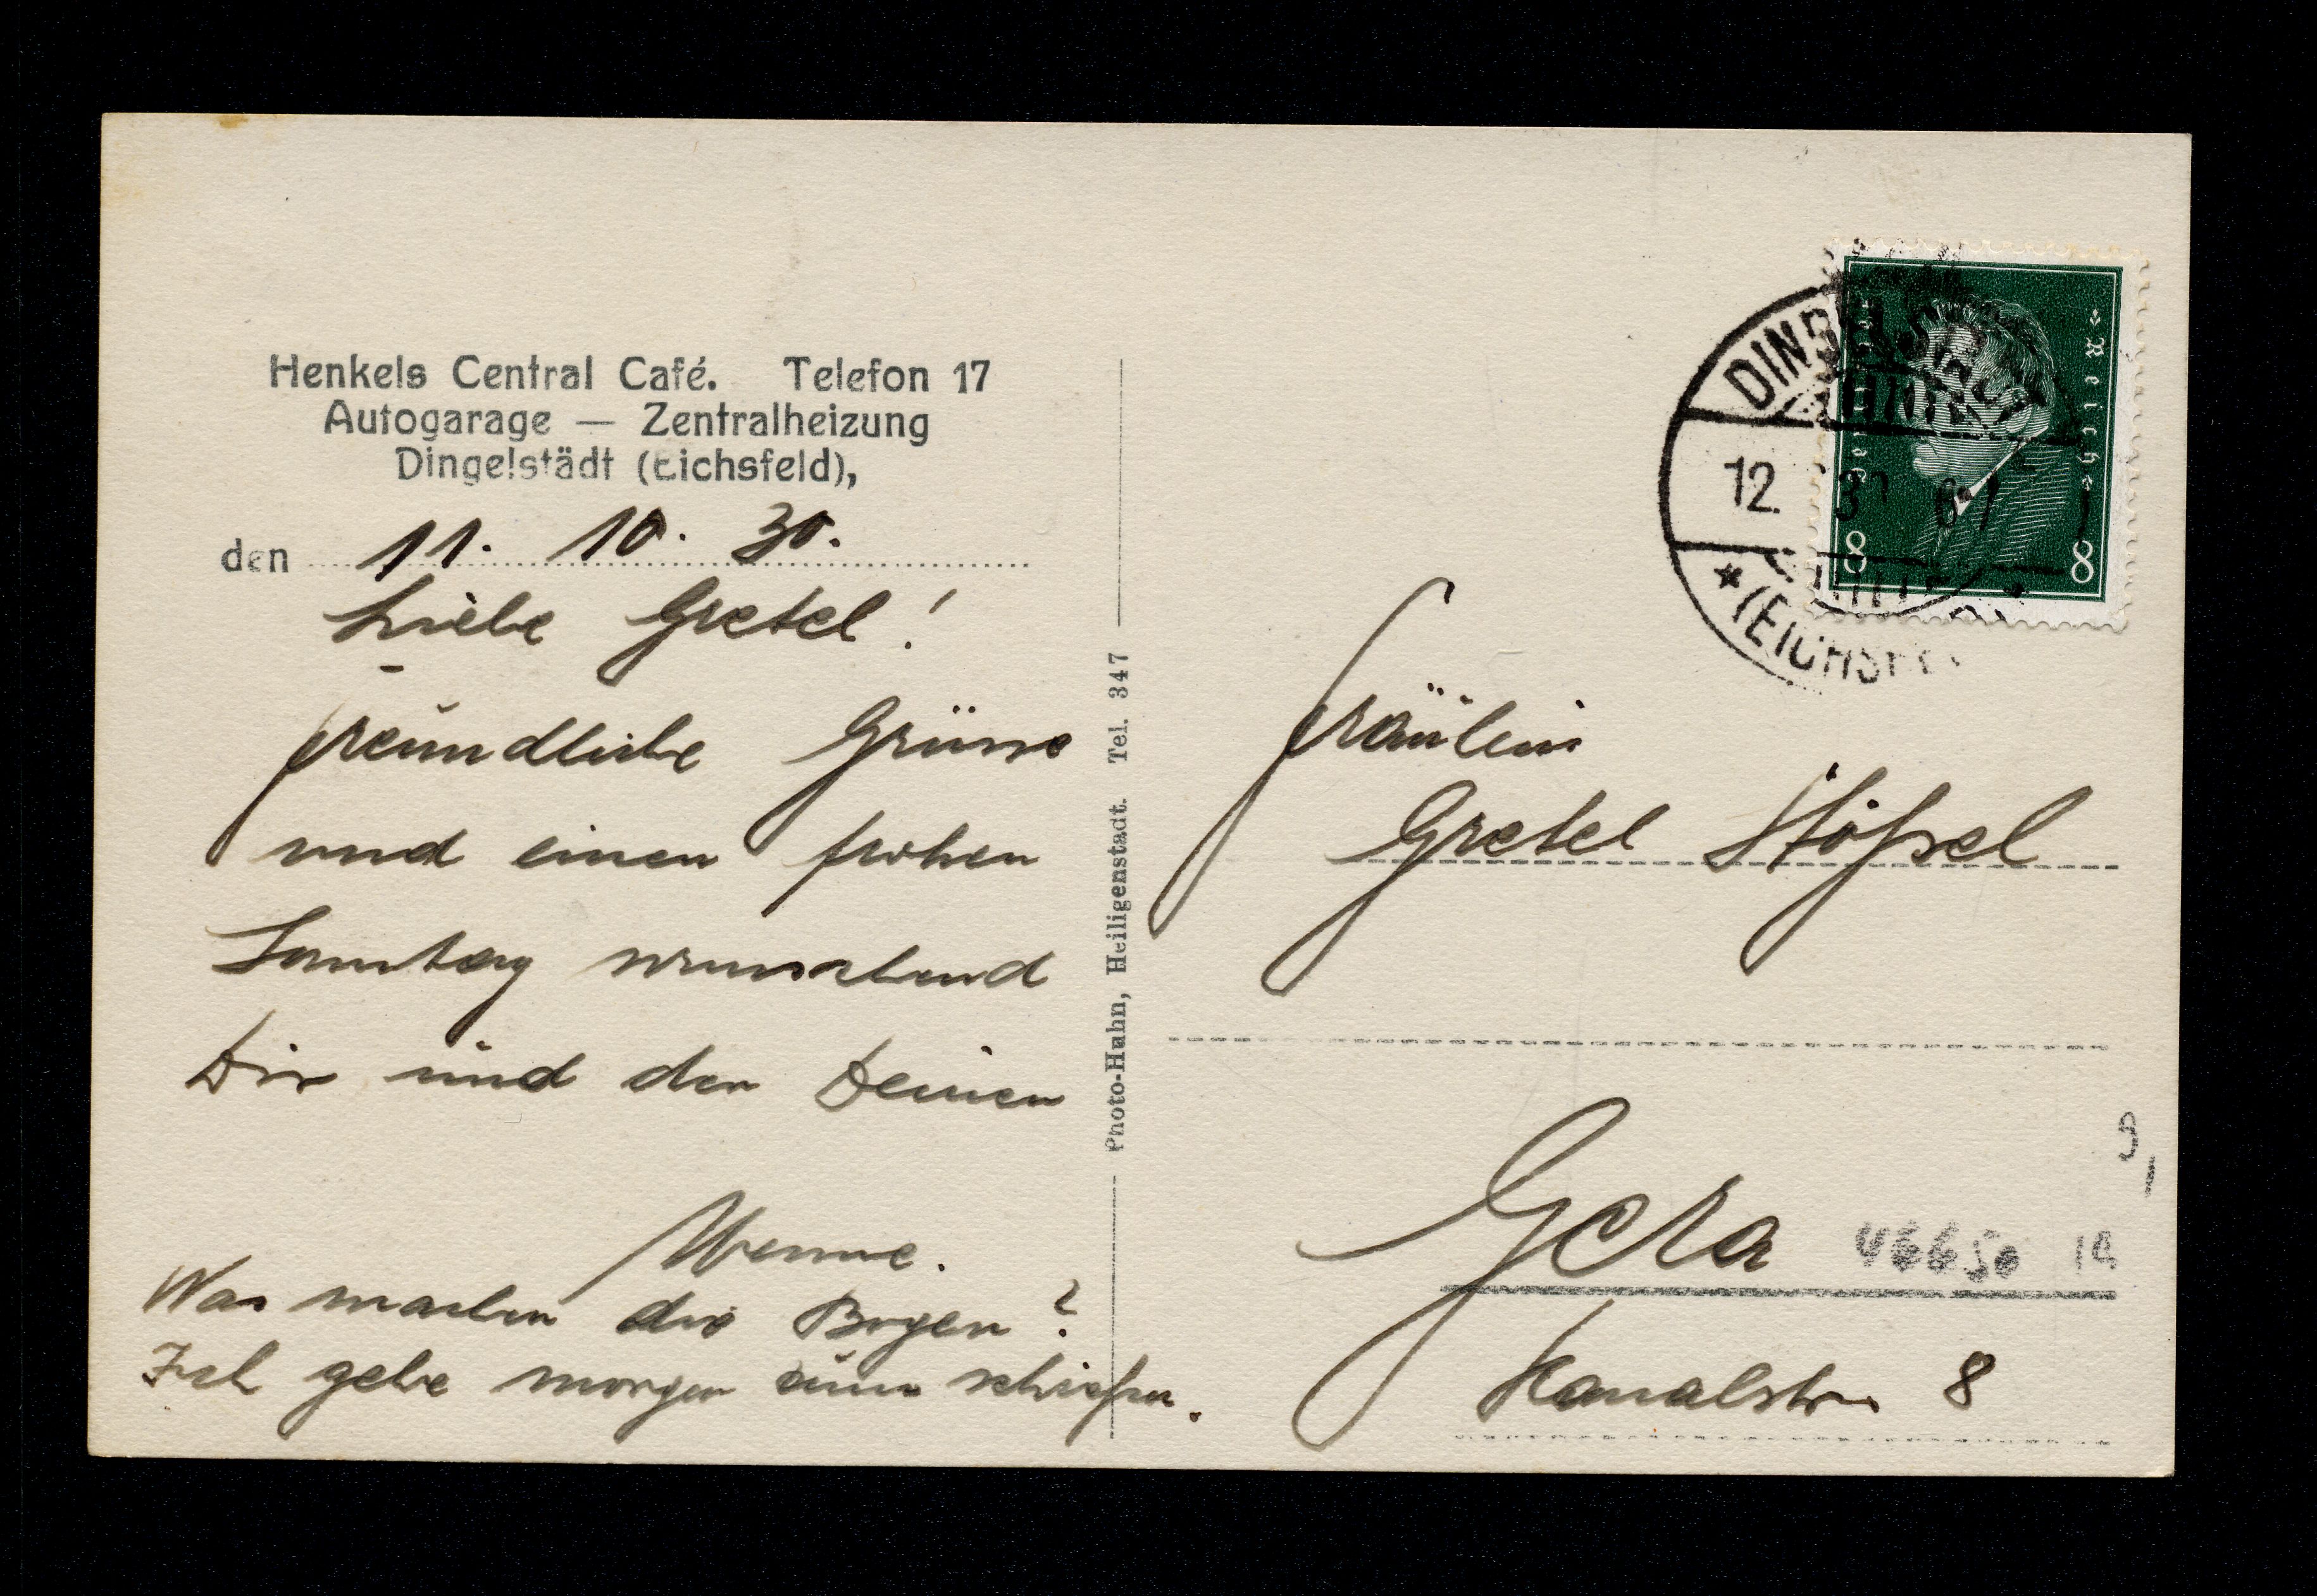 Henkels Central Café. Telefon 17
Autogarage — Zentralheizung
Dingelstädt (Eichsfeld),
den 11. 10. 30.
Liebe Gretel!
freundliche Grüsse
und einen frohen
Sonntag wünschend
Dir und den Deinen
Was machen die Bogen?
Ich gehe morgen zum schießen.
Photo-Huhn, Heiligenstadt. Tel. 347
DINGELSTÄDT
12. 30 6-7
*(EICHSFE
Reich
8 8
Fräulein
Gretel Stößel
Gera
Kanalstr. 8